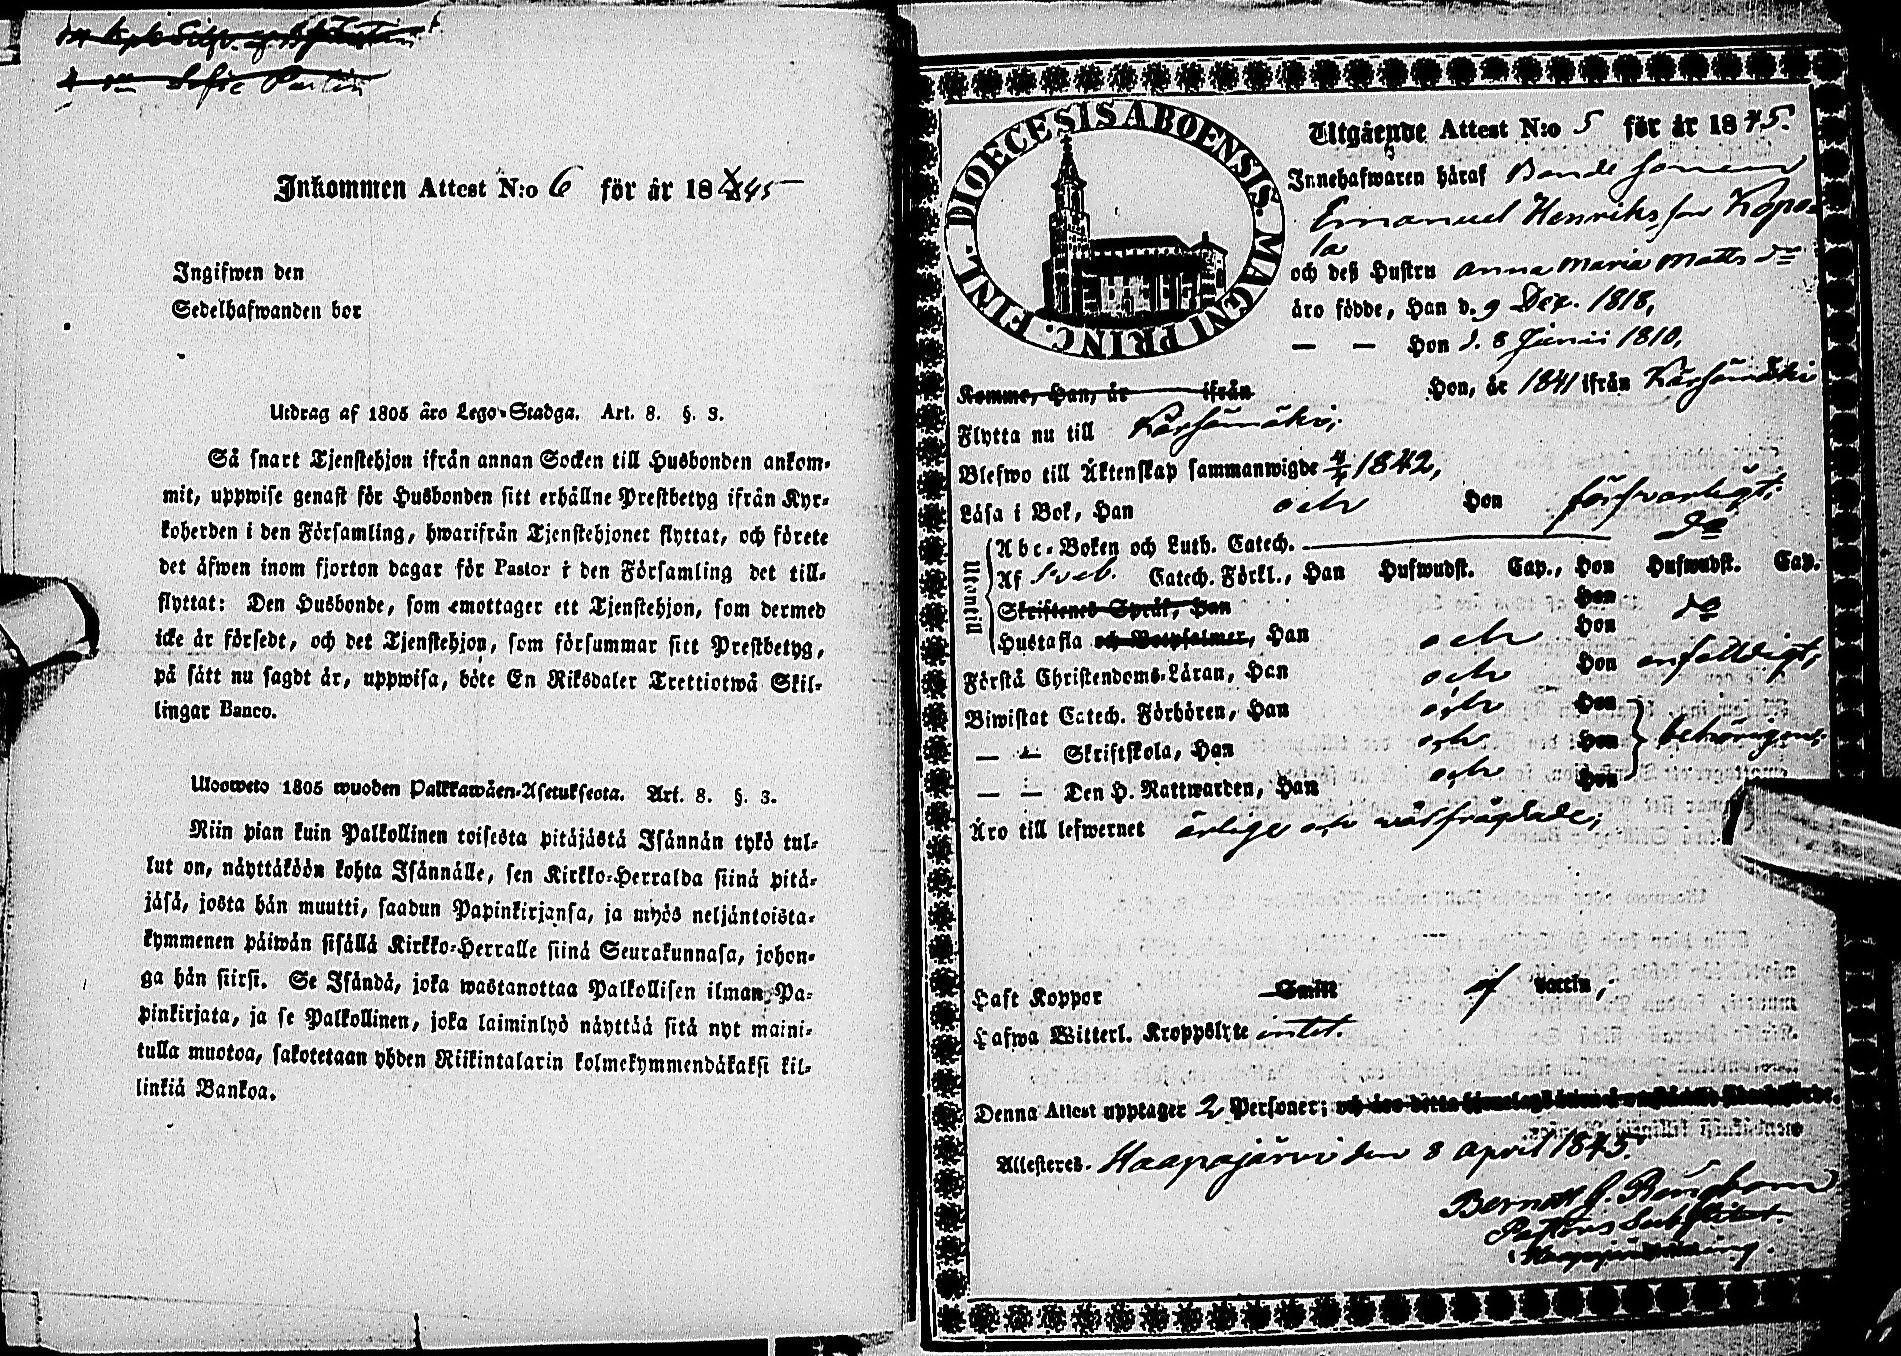 Inkommen Attest N:o 6 för år 1845
Ingifwen den
Sedelhafwanden bor
Utdrag af 1805 åro Lego-Stadga. Art. 8. §. 3.
Så snart Tjenstehjon ifrån annan Socken till Husbonden ankom-
mit, uppwise genast för Husbonden sitt erhållne Prestbetyg ifrån Kyr-
koherden i den Församling, hwarifrån Tjenstehjonet flyttat, och förete
det äfwen inom fjorton dagar för Pastor i den Församling det till-
flyttat: Den Husbonde, som emottager ett Tjenstehjon, som dermed
icke är försedt, och det Tjenstehjon, som försummar sitt Prestbetyg,
på sätt nu sagdt är, uppwisa, böte En Riksdaler Trettiotwå Skil-
lingar Banco.
Ulosweto 1805 wuoden Palkkawäen-Asetuksesta. Art. 8. §. 3.
Niin pian kuin Palkollinen toisesta pitäjästä Isännän tykö tul-
lut on, näyttäköön kohta Isännälle, sen Kirkko-Herralda siinä pitä-
jäsä, josta hän muutti, saadun Papinkirjansa, ja myös neljäntoista-
kymmenen päiwän sisällä Kirkko-Herralle siinä Seurakunnasa, johon-
ga hän siirsi. Se Isändä, joka wastanottaa Palkollisen ilman Pa-
pinkirjata, ja se Palkollinen, joka laiminlyö näyttää sitä nyt maini-
tulla muotoa, sakotetaan yhden Riikintalarin kolmekymmendäkaksi kil-
linkiä Bankoa.
DIOECESIS ABOENSIS. MAGNI PRINC. FINL.
Utgående Attest N:o 5 för år 1845.
Innehafwaren håraf Bonde sonen
Emanuel Henriksson Kopa-
la
och deß Hustru Anna Maria Matts dr
äro födde, Han d. 9 Dec. 1818,
— — Hon d. 8 Junii 1810,
Komme, Han, år ifrån Hon, år 1841 ifrån Kärsämäki
Flytta nu till Kärsämäki,
Blefwo till Äktenskap sammanwigde 4/4 1842,
Läsa i Bok, Han och Hon försvarligt;
Utontill
Abc-Boken och Luth. Catech. do
Af Sveb. Catech. Förkl., Han Hufwudst. Cap., Hon Hufwudst. Cap.
Skriftenes Språk, Han Hon do
Hustafla och Botpsalmer, Han och Hon
Förstå Christendoms-Läran, Han och Hon enfaldigt;
Biwistat Catech. Förhören, Han och Hon
— — Skriftskola, Han och Hon behörigen;
— — Den H. Nattwarden, Han och Hon
Äro till lefwernet ärlige och välfrägdade;
Haft Koppor Smitt af Vaccin;
Hafwa Witterl. Kroppslyte intet.
Denna Attest upptager 2 Personer;
Attesteres. Haapajärvi den 8 April 1845.
Berndt J. Bergbom
Pastors Substitut.